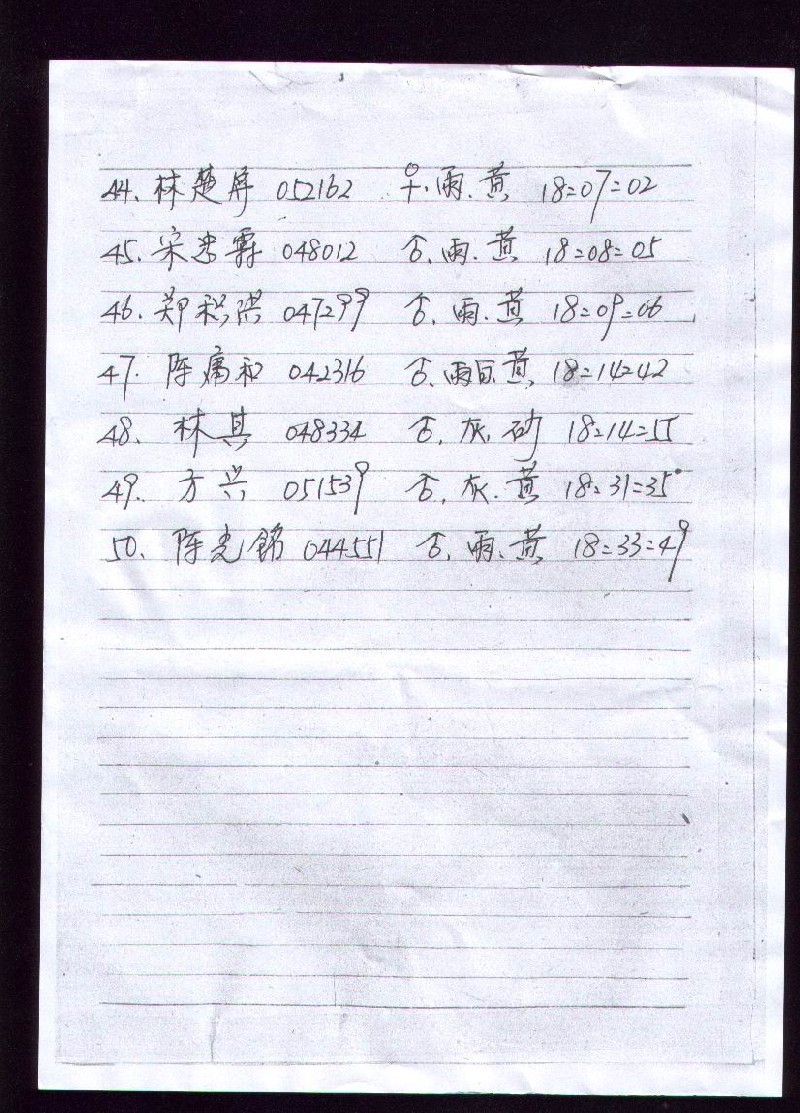 44. 林楚屏 052162 ♀. 雨. 黄 18=07=02
45. 宋忠霖 048012 雨. 黄 18=08=05
46. 郑 洪 047299 雨. 黄 18=09=06
47. 陈 和 042316 雨白 黄 18=14=42
48. 林其 048334 灰. 砂 18=14=55
49. 方兴 051539 灰. 黄 18=31=35
50. 陈光铭 044551 雨. 黄 18=33=49